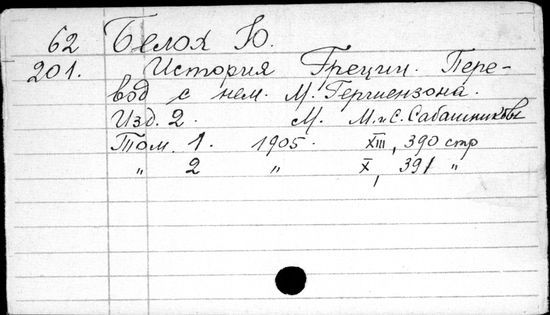 62 Белох Ю.
201. История Греции. Пере-
вод с нем. М. Гершензона.
Изд. 2. М. М. и С. Сабашниковы
Том. 1. 1905. XIII, 390 стр
„ 2 „ X, 391 „